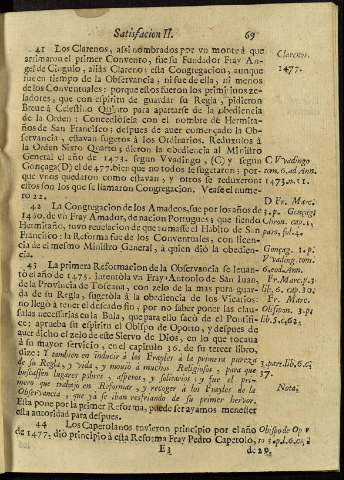 Satisfacion II. 69
41 Los Clarenos, assi nombrados por vn monte à que
arrimaron el primer Convento, fue su Fundador Fray An-
gel de Cingulo, aliàs Clareno: esta Congregacion, aunque
fue en tiempo de la Observancia, ni fue de ella, ni menos
de los Conventuales: porque estos fueron los primitivos ze-
ladores, que con espiritu de guardar su Regla, pidieron
Breve à Celestino Quinto para apartarse de la obediencia
de la Orden: Concediòsela con el nombre de Hermita-
ños de San Francisco; despues de aver comenzado la Ob-
servancia, estavan sugetos à los Ordinarios. Reduxolos à
la Orden Sixto Quarto; dieron la obediencia al Ministro
General el año de 1473. segun Vvadingo, (C) y segun
Gonçaga (D) el de 477. bien que no todos se sugetaron; por-
que vnos quedaron como estavan, y otros se reduxeron
estos son los que se llamaron Congregacion. Vease el nume-
ro 22.
42 La Congregacion de los Amadeos, fue por los años de
1460. de vn Fray Amador, de nacion Portugues; que siendo
Hermitaño, tuvo revelacion de que tomasse el Habito de San
Francisco: la Reforma fue de los Conventuales, con licen-
cia de el mismo Ministro General, à quien diò la obedien-
cia.
43 La primera Reformacion de la Observancia se levan-
tò el año de 1475. Intentòla vn Fray Antonio de San Juan,
de la Provincia de Toscana, con zelo de la mas pura guar-
da de su Regla, sugetòla à la obediencia de los Vicarios:
no llegò à tener el deseado fin, por no saber poner las clau-
sulas necessarias en la Bula, que para ello sacò de el Pontifi-
ce; aprueba su espiritu el Obispo de Oporto, y despues de
aver dicho el zelo de este Siervo de Dios, en lo que tocava
à su mayor servicio, en el capitulo 36. de su tercer libro,
dize: Y tambien en induzir à los Frayles à la primera pureza
de su Regla, y vida, y moviò à muchos Religiosos, para que
buscassen lugares pobres, asperos, y solitarios y fue el pri-
mero que trabajò en Reformar, y recoger à los Frayles de la
Observancia, que ya se iban resfriando de su primer hervor.
Esta pone por la primer Reforma, puede ser ayamos menester
esta autoridad para despues.
44 Los Caperolanos tuvieron principio por el año
de 1477. diò principio à esta Reforma Fray Pedro Caperolo,
E3 de 29.
Clarenos.
1477.
C Vvadingo
tom. 6. ad Ann.
1473. n. 11.
D Fr. Marc.
3. p. Gonçag
Gonçag. 1. p.
Vvading. tom.
6. eod. Ann.
Fr. Marc. p. 3
lib. 6. cap. 30.
Fr. Marc.
Obispan. 3. p.
lib. 5. c. 62.
3. part. lib. 6. c.
37.
Nota.
Obisp. de Op v